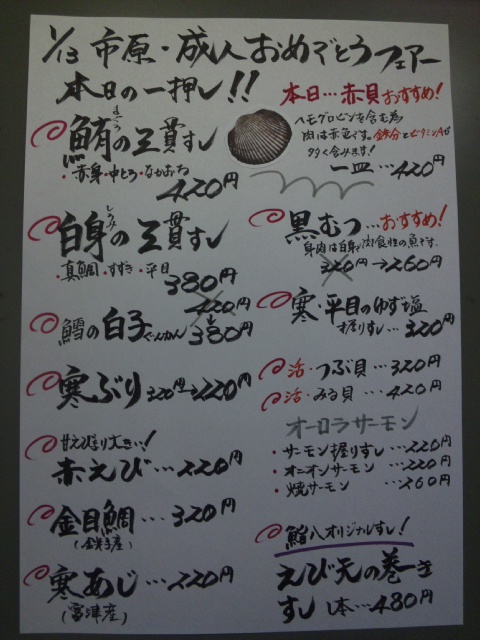 1/13 市原・成人おめでとうフェアー
本日の一押し!!
鮪の三貫すし
まぐろ
・赤身・中とろ・なかおち
420円
白身の三貫すし
しろみ
・真鯛・すずき・平目
380円
鱈の白子ぐんかん
420円→380円
寒ぶり 320円→220円
甘え
赤えび…220円
金目鯛…320円
(銚子産)
寒あじ…220円
(富津産)
本日…赤貝おすすめ!
ヘモグロビンを含む為
肉は赤色です。鉄分とビタミンAが
多く含みます!
一皿…420円
黒むつ…おすすめ!
身肉は白身で肉食性の魚です。
320円→260円
寒・平目のゆず塩
握りすし…320円
活・つぶ貝…320円
活・みる貝…420円
オーロラサーモン
・サーモン握りすし…220円
・オニオンサーモン…220円
・焼サーモン…260円
鮨八オリジナルすし!
えび天の巻き
すし 1本…480円